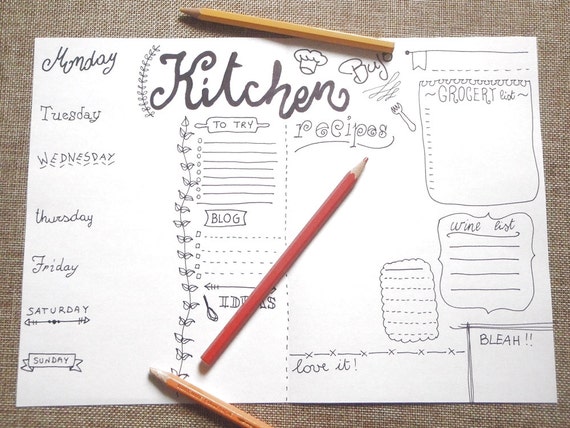 Monday
Tuesday
WEDNESDAY
thursday
Friday
SATURDAY
SUNDAY
Kitchen
TO TRY
BLOG
IDEAS
Buy
recipes
GROCERY list
wine list
love it!
BLEAH!!